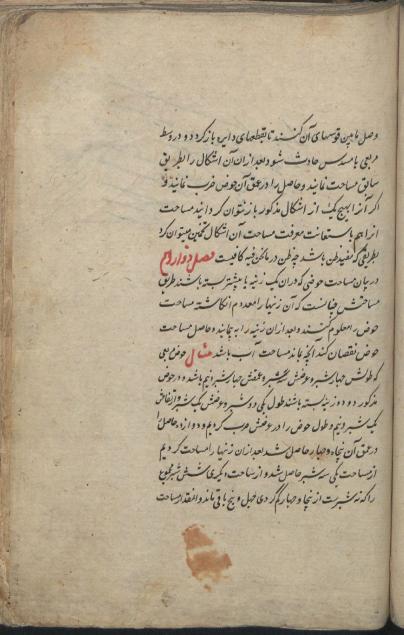 وصل مابین قوسهای آن کنند تا بقطعهای دایره باز کردد و در وسط
مربعی یا مسدس حادث شود بعد ازان آن اشکال را بطریق
سابق مساحت نمایند و حاصل را در عمق آن حوض ضرب نمایند و
اکر آنرا بهیچ یک از اشکال مذکور باز نتوان کردانید مساحت
انرا هم باستعانت معرفت مساحت آن اشکال تخمین میتوان کرد
بطریقی که مفید ظن باشد چه ظن در مانحن فیه کافیست فصل دوازدهم
در بیان مساحت حوضی که دران یک زینه یا بیشتر بسته باشند طریق
مساحتش چنانست که آن زینها را معدوم انکاشته مساحت
حوض را معلوم کنند و بعد ازان زینه را بپیمایند و حاصل مساحت
حوض نقصان کنند آنچه بماند مساحت آب باشد مثال حوض مربعی
که طولش چهار شبر و عرضش شبر و عمقش چهار شبر و نیم باشد و در حوض
مذکور دو زینه بسته باشند طول یکی دو شبر و عرضش یک شبر و ارتفاعش
یک شبر و نیم و طول حوض را در عرضش ضرب کردیم دوازده حاصل را
در عمق آن پنجاه و چهار حاصل شد بعد ازان زینها را مساحت کردیم
از مساحت یکی سه شبر حاصل شد و از مساحت دیکری شش شبر مجموع
را که نه شبرست از پنجاه و چهار کم کردی چهل و پنج باقی ماند و انقدار مساحت